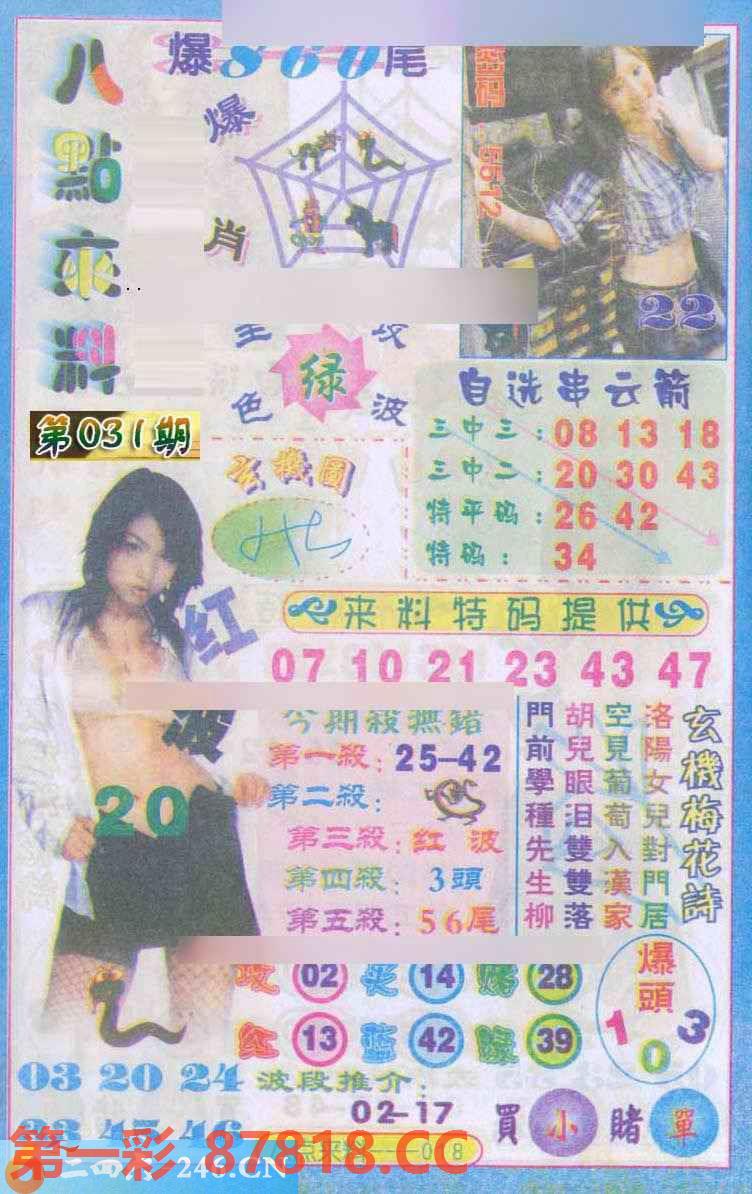 八點來料
爆860尾
爆肖
5512
22
全攻
绿
色波
第031期
玄機圖
自选串云箭
三中三:08 13 18
三中二:20 30 43
特平码:26 42
特码:34
红波
20
来料特码提供
07 10 21 23 43 47
今期殺無錯
第一殺:25-42
第二殺:
第三殺:红波
第四殺:3頭
第五殺:56尾
玄機梅花詩
洛陽女兒對門居
空見葡萄入漢家
胡兒眼泪雙雙落
門前學種先生柳
02 14 28
红13 蓝42 绿39
爆頭
1 0 3
03 20 24
波段推介:
02-17
買小賭單
第一彩 87818.CC
246.CN